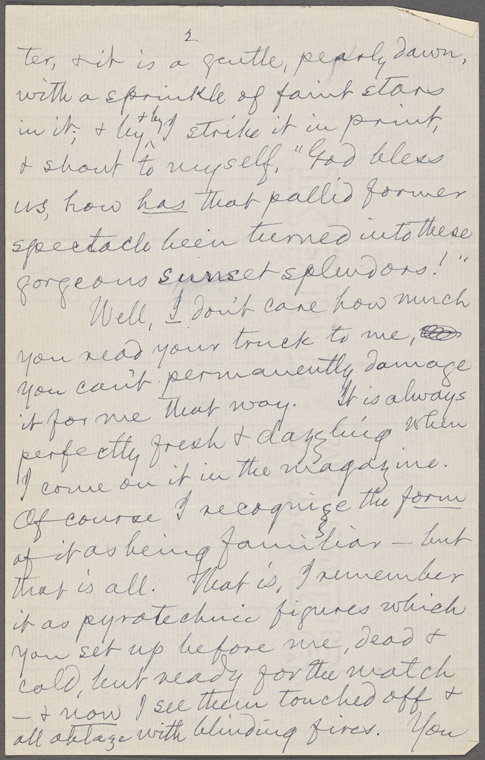 2
ter, & it is a gentle, pearly dawn,
with a sprinkle of faint stars
in it; & by & by I strike it in print,
& shout to myself, "God bless
us, how has that pallid former
spectacle been turned into these
gorgeous sunset splendors!"
Well, I don't care how much
you read your truck to me,
you can't permanently damage
it for me that way. It is always
perfectly fresh & dazzling when
I come on it in the magazine.
Of course I recognize the form
of it as being familiar — but
that is all. That is, I remember
it as pyrotechnic figures which
you set up before me, dead &
cold, but ready for the match
— & now I see them touched off &
all ablaze with blinding fires. You